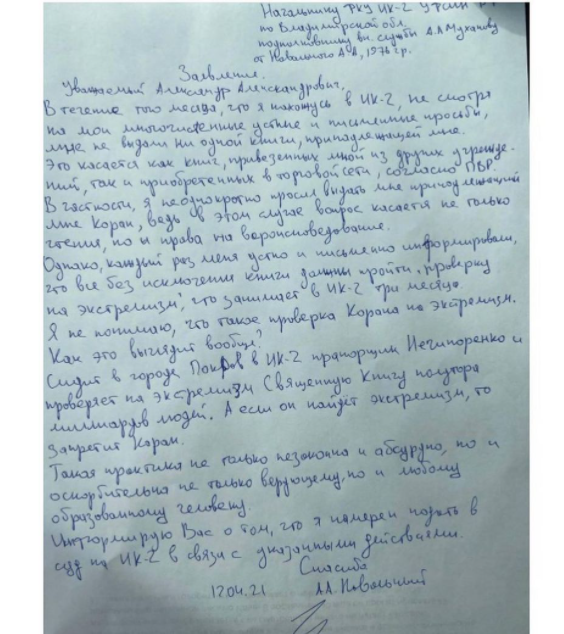 Начальнику ФКУ ИК-2 УФСИН Р
по Владимирской обл.
подполковнику вн. службы А.А Муханову
от Навального А.А, 1976 г.р.
Заявление.
Уважаемый Александр Александрович.
В течение того месяца, что я нахожусь в ИК-2, не смотря
на мои многочисленные устные и письменные просьбы,
мне не выдали ни одной книги, принадлежащей мне.
Это касается как книг, привезенных мной из других учрежде-
ний, так и приобретенных в торговой сети, согласно ПВР.
В частности, я неоднократно просил выдать мне принадлежащий
мне Коран, ведь в этом случае вопрос касается не только
чтения, но и права на вероисповедование.
Однако, каждый раз меня устно и письменно информировали,
что все без исключения книги должны пройти „проверку
на экстремизм", что занимает в ИК-2 три месяца.
Я не понимаю, что такое проверка Корана на экстремизм.
Как это выглядит вообще?
Сидит в городе Покров в ИК-2 прапорщик Нечипоренко и
проверяет на экстремизм Священную Книгу полутора
миллиардов людей. А если он найдёт экстремизм, то
запретит Коран.
Такая практика не только незаконна и абсурдна, но и
оскорбительна не только верующему, но и любому
образованному человеку.
Информирую Вас о том, что я намерен подать в
суд на ИК-2 в связи с указанными действиями.
Спасибо
12.04.21 А.А. Навальный